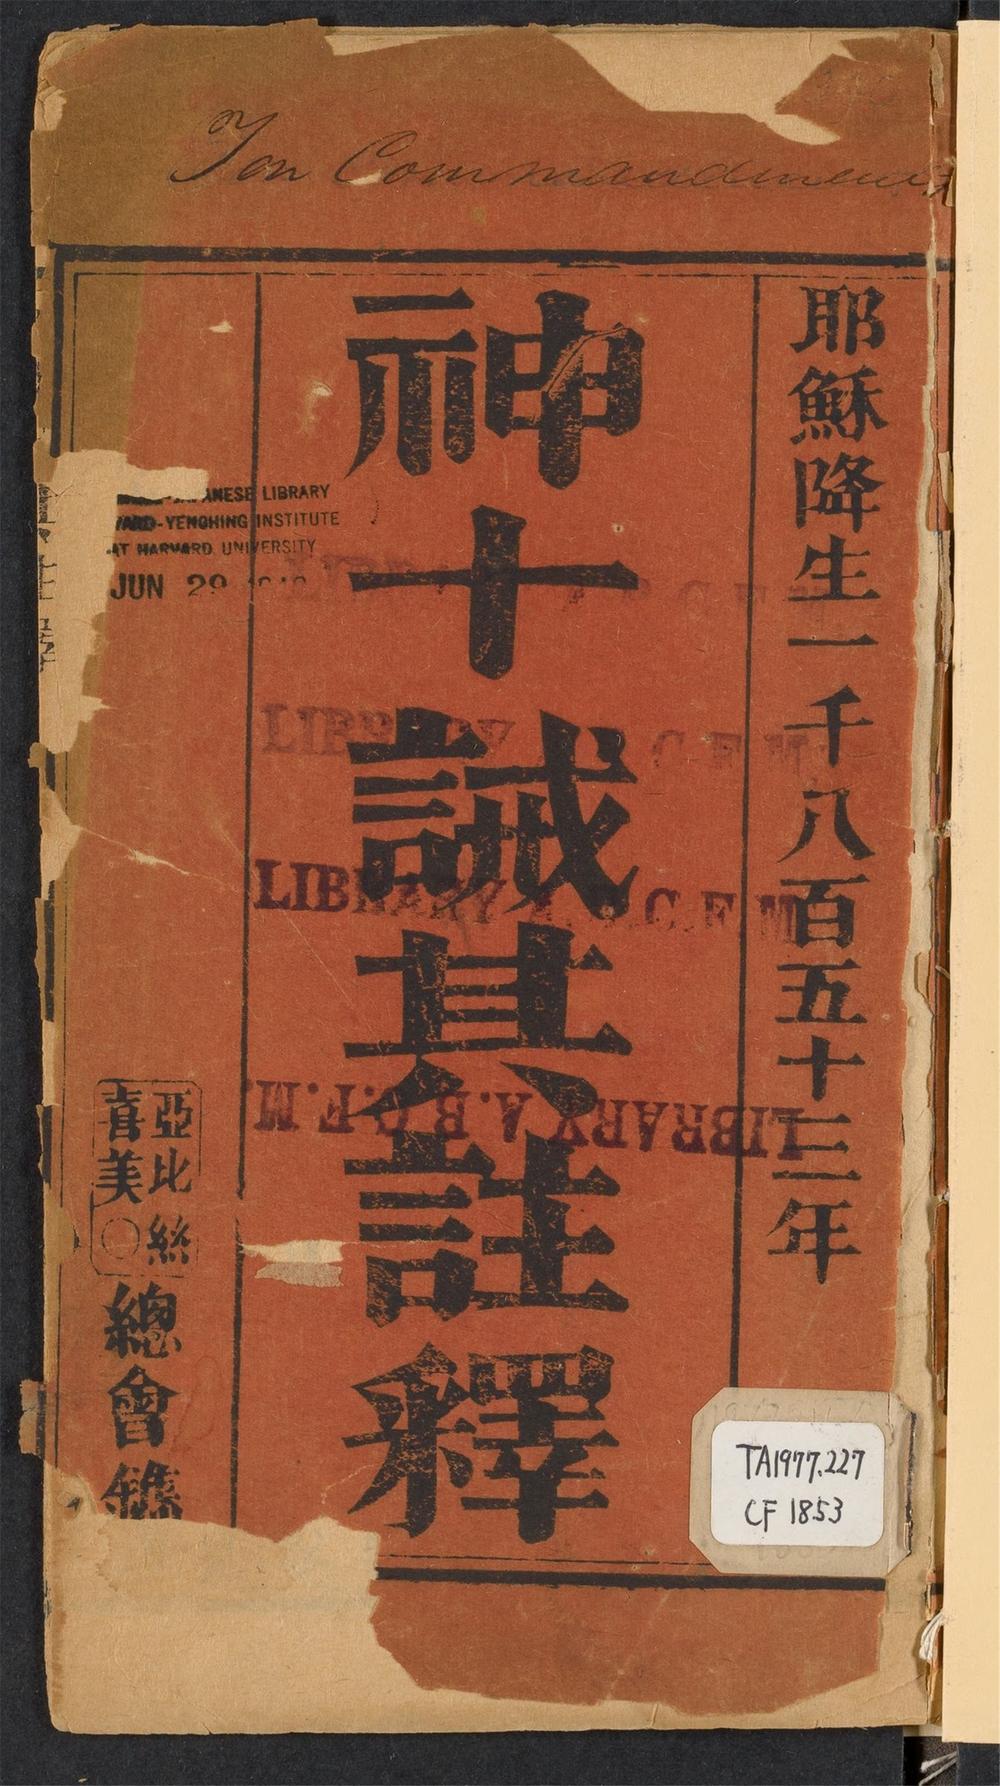 Ten Commandments
耶穌降生一千八百五十三年
神十誡其註釋
亞比絲
喜美〇
總會鐫
JAPANESE LIBRARY
YARD-YENCHING INSTITUTE
AT HARVARD UNIVERSITY
JUN 29
LIBRARY A.B.C.F.M.
LIBRARY A.B.C.F.M.
LIBRARY A.B.C.F.M.
LIBRARY A.B.C.F.M.
TA1977.227
CF 1853